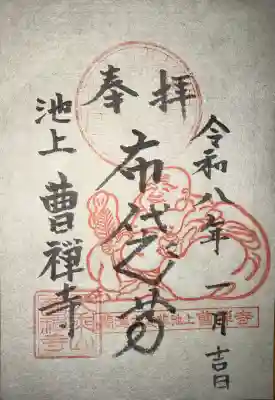 令和八年 一月吉日
奉拝
布袋尊
池上 曹禪寺
池上曹禪寺